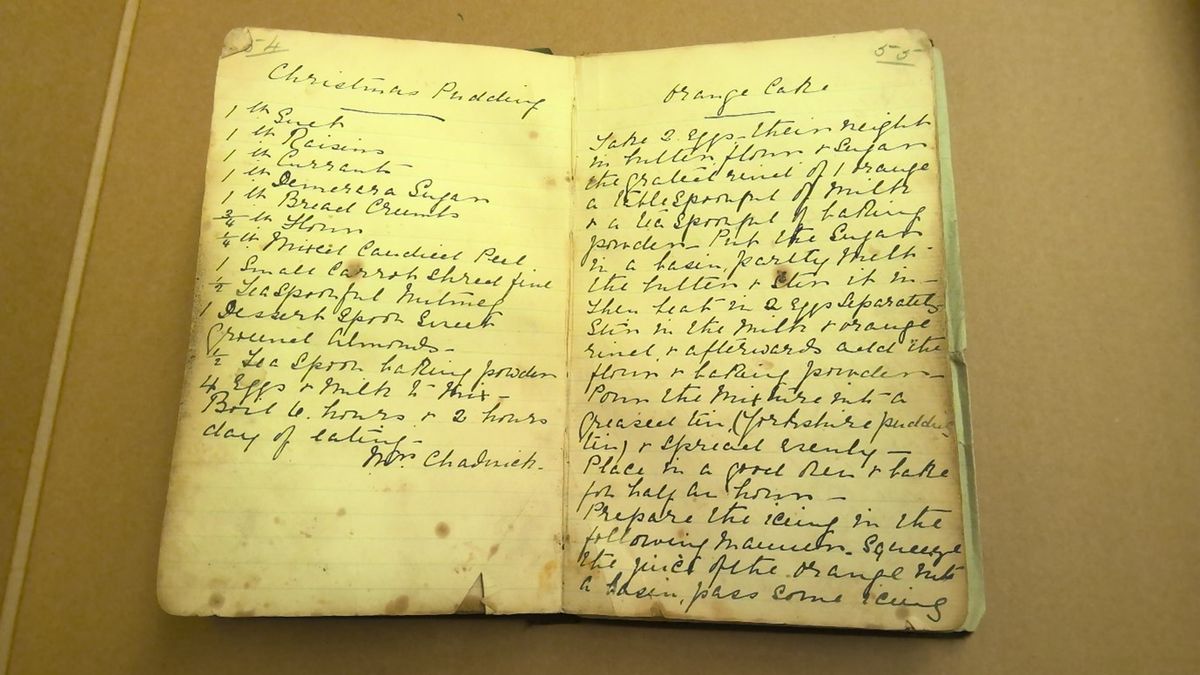 54
Christmas Pudding
1 lb Suet
1 lb Raisins
1 lb Currants
1 lb Demerara Sugar
1 lb Bread Crumbs
3/4 lb Flour
1/4 lb Mixed Candied Peel
1 Small Carrot shred fine
1/2 Teaspoonful Nutmeg
1 Dessert Spoon Sweet
Ground Almonds-
1/2 Tea Spoon baking powder
4 Eggs & Milk to Mix-
Boil 6. hours & 2 hours
day of eating-
Mrs. Chadwick.
55
Orange Cake
Take 2 Eggs-their weight
in butter, flour & Sugar
the grated rind of 1 orange
a tablespoonful of Milk
& a teaspoonful of baking
powder- Put the Sugar
in a basin, partly melt
the butter & stir it in-
Then beat in 2 Eggs separately
Stir in the Milk & orange
rind, & afterwards add the
flour & baking powder-
Pour the Mixture into a
greased tin, (Yorkshire pudding
tin) & spread evenly-
Place in a good Oven & bake
for half an hour-
Prepare the icing in the
following manner- Squeeze
the juice of the orange into
a basin, pass some icing